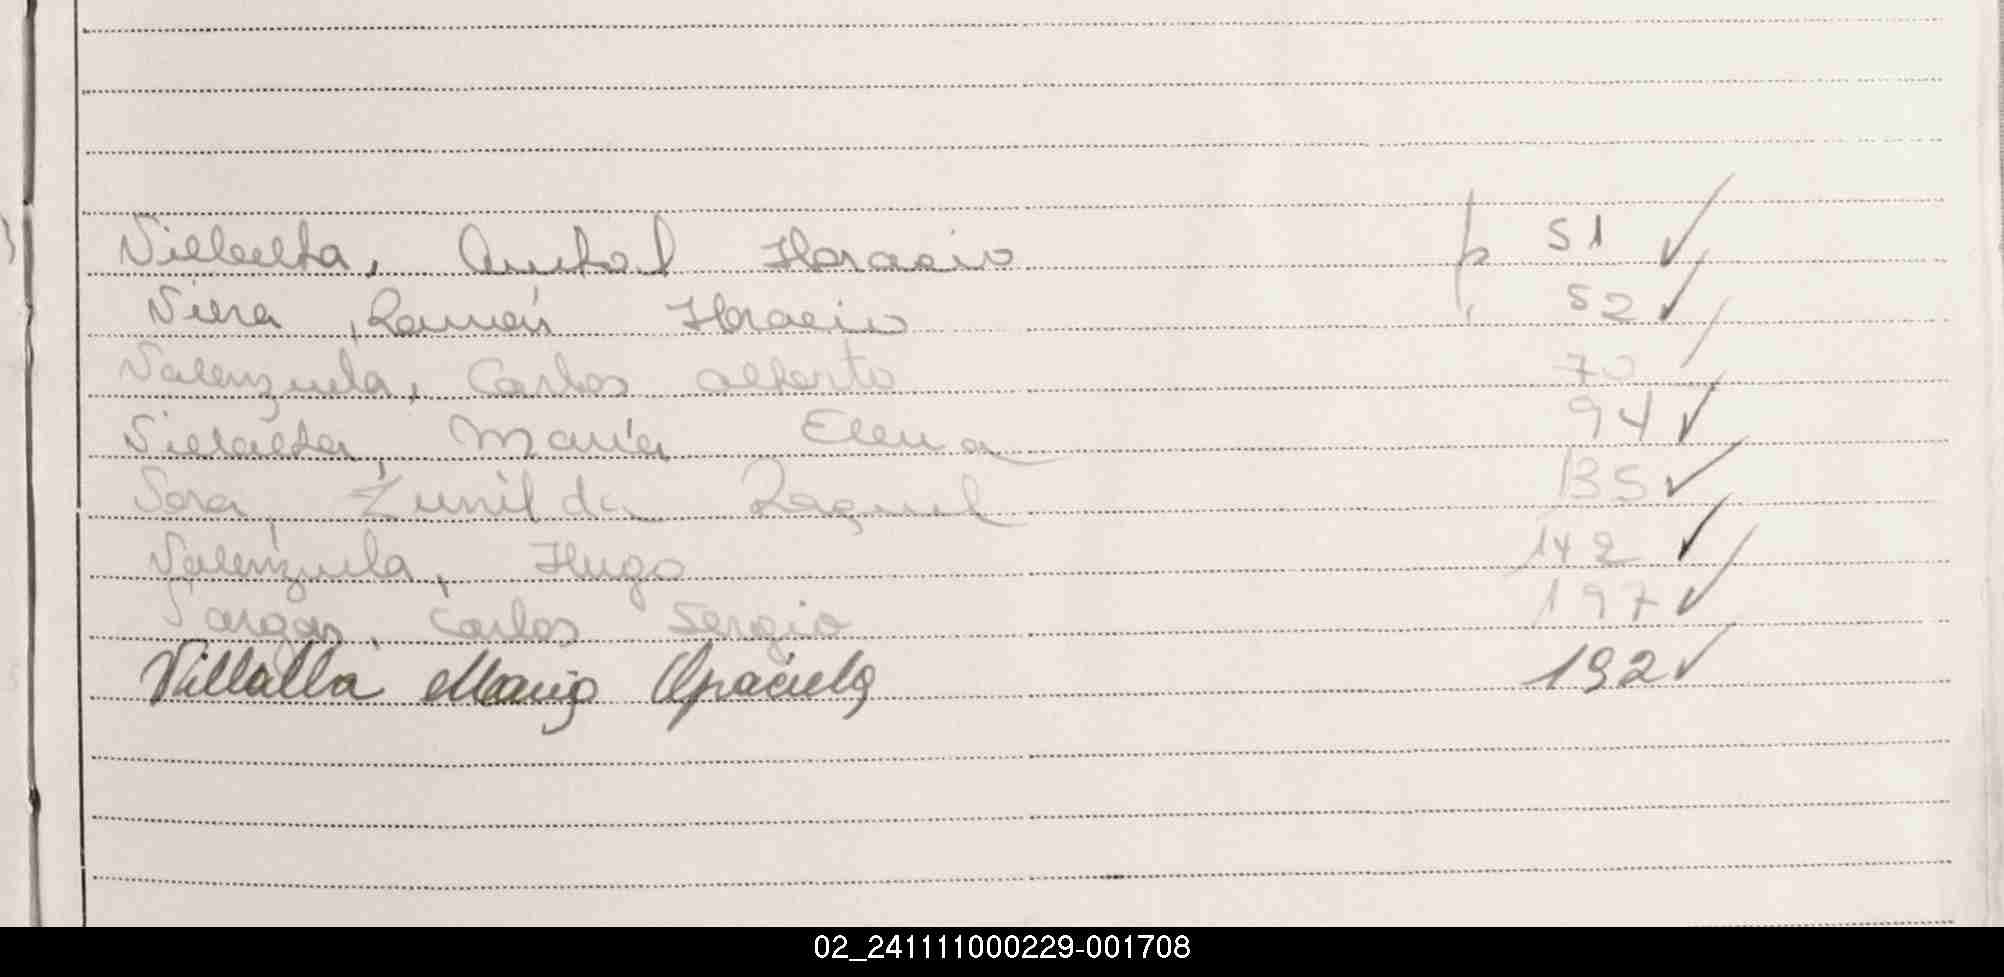 Villalta, Anibal Horacio 51 ✓
Viera, Ramón Horacio 52 ✓
Valenzuela, Carlos alberto 70 /
Villalta, María Elena 94 ✓
Vera, Zunilda Raquel 135 ✓
Valenzuela, Hugo 142 ✓
Vargas, Carlos Sergio 197 ✓
Villalba Mario 192 ✓
02_241111000229-001708